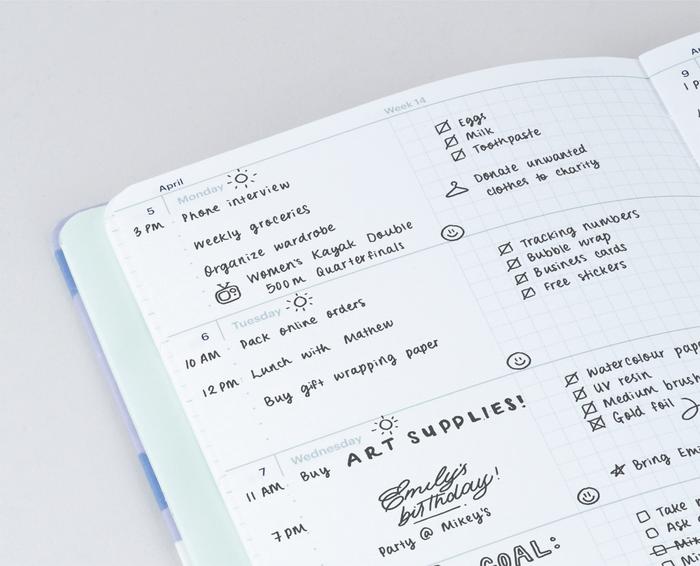 Week 14
April
5
Monday
3 PM Phone interview
Weekly groceries
Organize wardrobe
Women's Kayak Double
500m Quarterfinals
Eggs
Milk
Toothpaste
Donate unwanted
clothes to charity
6
Tuesday
10 AM Pack online orders
12 PM Lunch with Mathew
Buy gift wrapping paper
Tracking numbers
Bubble wrap
Business cards
Free stickers
7
Wednesday
11 AM Buy ART SUPPLIES!
Emily's
birthday!
7 PM Party @ Mikey's
Watercolour
UV resin
Medium brush
Gold foil
Bring
GOAL:
Take
Ask
9
1